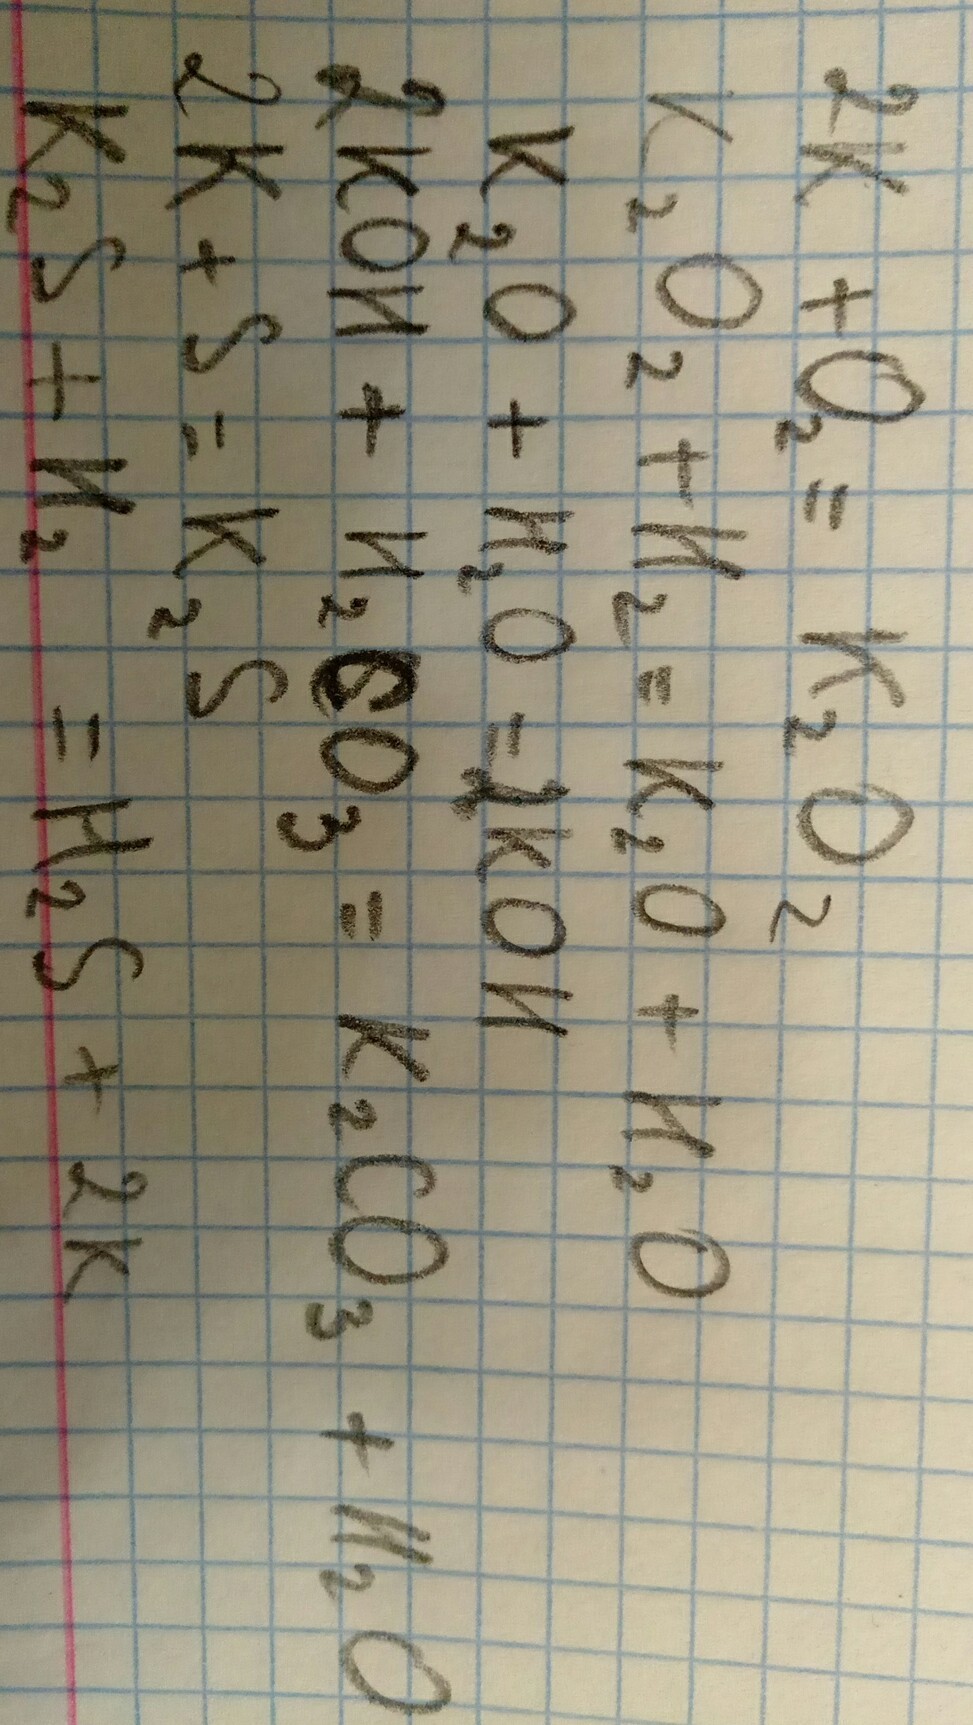 2K + O₂ = K₂O₂
K₂O₂ + H₂ = K₂O + H₂O
K₂O + H₂O = 2KOH
2KOH + H₂CO₃ = K₂CO₃ + H₂O
2K + S = K₂S
K₂S + H₂ = H₂S + 2K